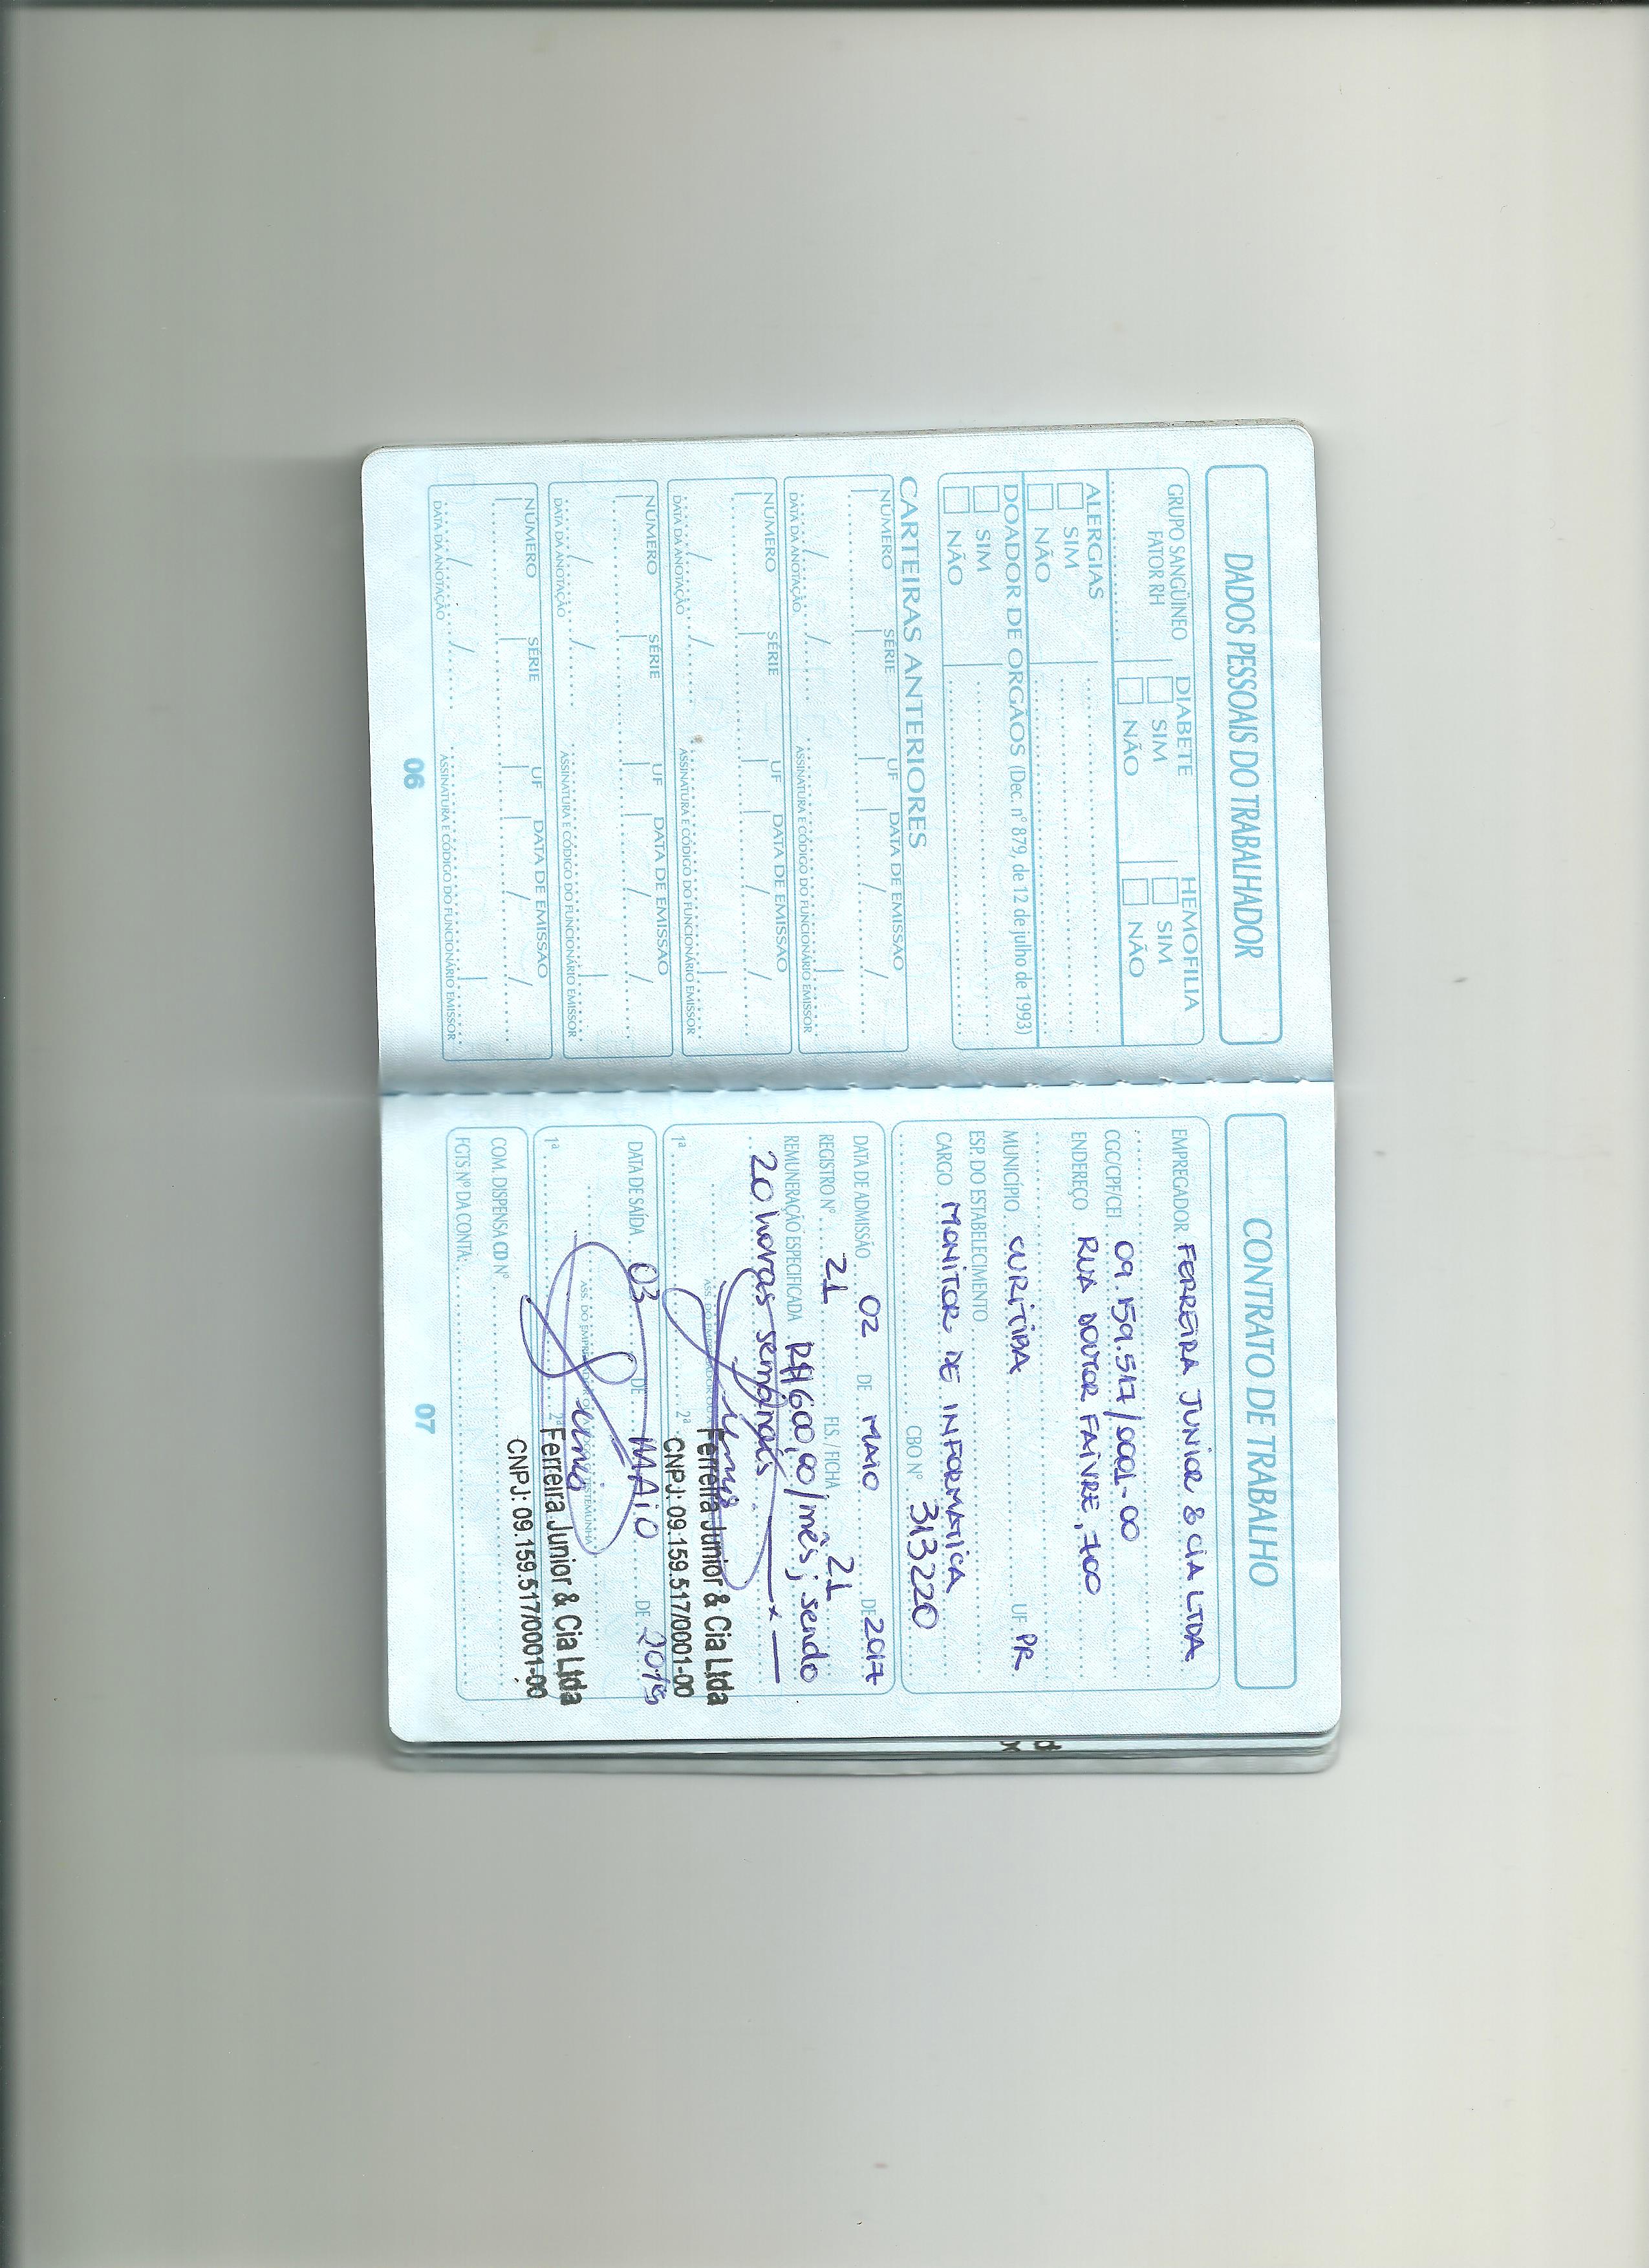 DADOS PESSOAIS DO TRABALHADOR
GRUPO SANGÜINEO
FATOR RH
DIABETE
SIM
NÃO
HEMOFILIA
SIM
NÃO
ALERGIAS
SIM
NÃO
DOADOR DE ORGÃOS (Dec. nº 879, de 12 de julho de 1993)
SIM
NÃO
CARTEIRAS ANTERIORES
NÚMERO SÉRIE UF DATA DE EMISSÃO
/ /
/ /
DATA DA ANOTAÇÃO ASSINATURA E CÓDIGO DO FUNCIONÁRIO EMISSOR
NÚMERO SÉRIE UF DATA DE EMISSÃO
/ /
/ /
DATA DA ANOTAÇÃO ASSINATURA E CÓDIGO DO FUNCIONÁRIO EMISSOR
NÚMERO SÉRIE UF DATA DE EMISSÃO
/ /
/ /
DATA DA ANOTAÇÃO ASSINATURA E CÓDIGO DO FUNCIONÁRIO EMISSOR
NÚMERO SÉRIE UF DATA DE EMISSÃO
/ /
/ /
DATA DA ANOTAÇÃO ASSINATURA E CÓDIGO DO FUNCIONÁRIO EMISSOR
06
CONTRATO DE TRABALHO
EMPREGADOR FERREIRA JUNIOR & CIA LTDA
CGC/CPF/CEI 09.159.517/0001-00
ENDEREÇO RUA DOUTOR FAIVRE, 700
MUNICÍPIO CURITIBA UF PR
ESP. DO ESTABELECIMENTO
CARGO MONITOR DE INFORMATICA
CBO Nº 313220
DATA DE ADMISSÃO 02 DE MAIO DE 2017
REGISTRO Nº 21 FLS. / FICHA 21
REMUNERAÇÃO ESPECIFICADA R$ 600,00/mês; sendo
20 horas semanais x
Ferreira Junior & Cia Ltda
1ª 2ª CNPJ: 09.159.517/0001-00
DATA DE SAÍDA 03 DE MAIO DE 2019
1ª 2ª Ferreira Junior & Cia Ltda
CNPJ: 09.159.517/0001-00
COM. DISPENSA CD Nº
FGTS Nº DA CONTA:
07